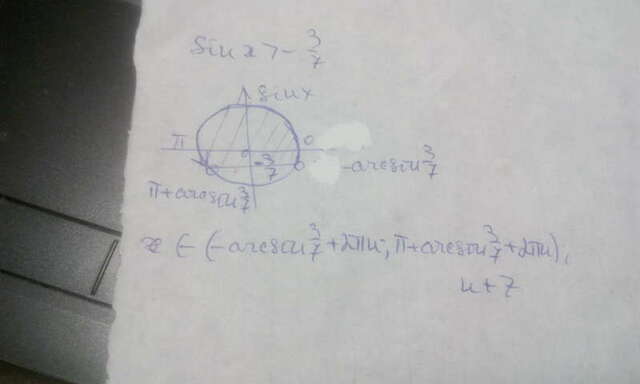 sin x > - 3/7
sin x
π 0
0
- 3/7
-arcsin 3/7
π+arcsin 3/7
x ∈ (-arcsin 3/7 + 2πn; π+arcsin 3/7 + 2πn),
n ∈ Z